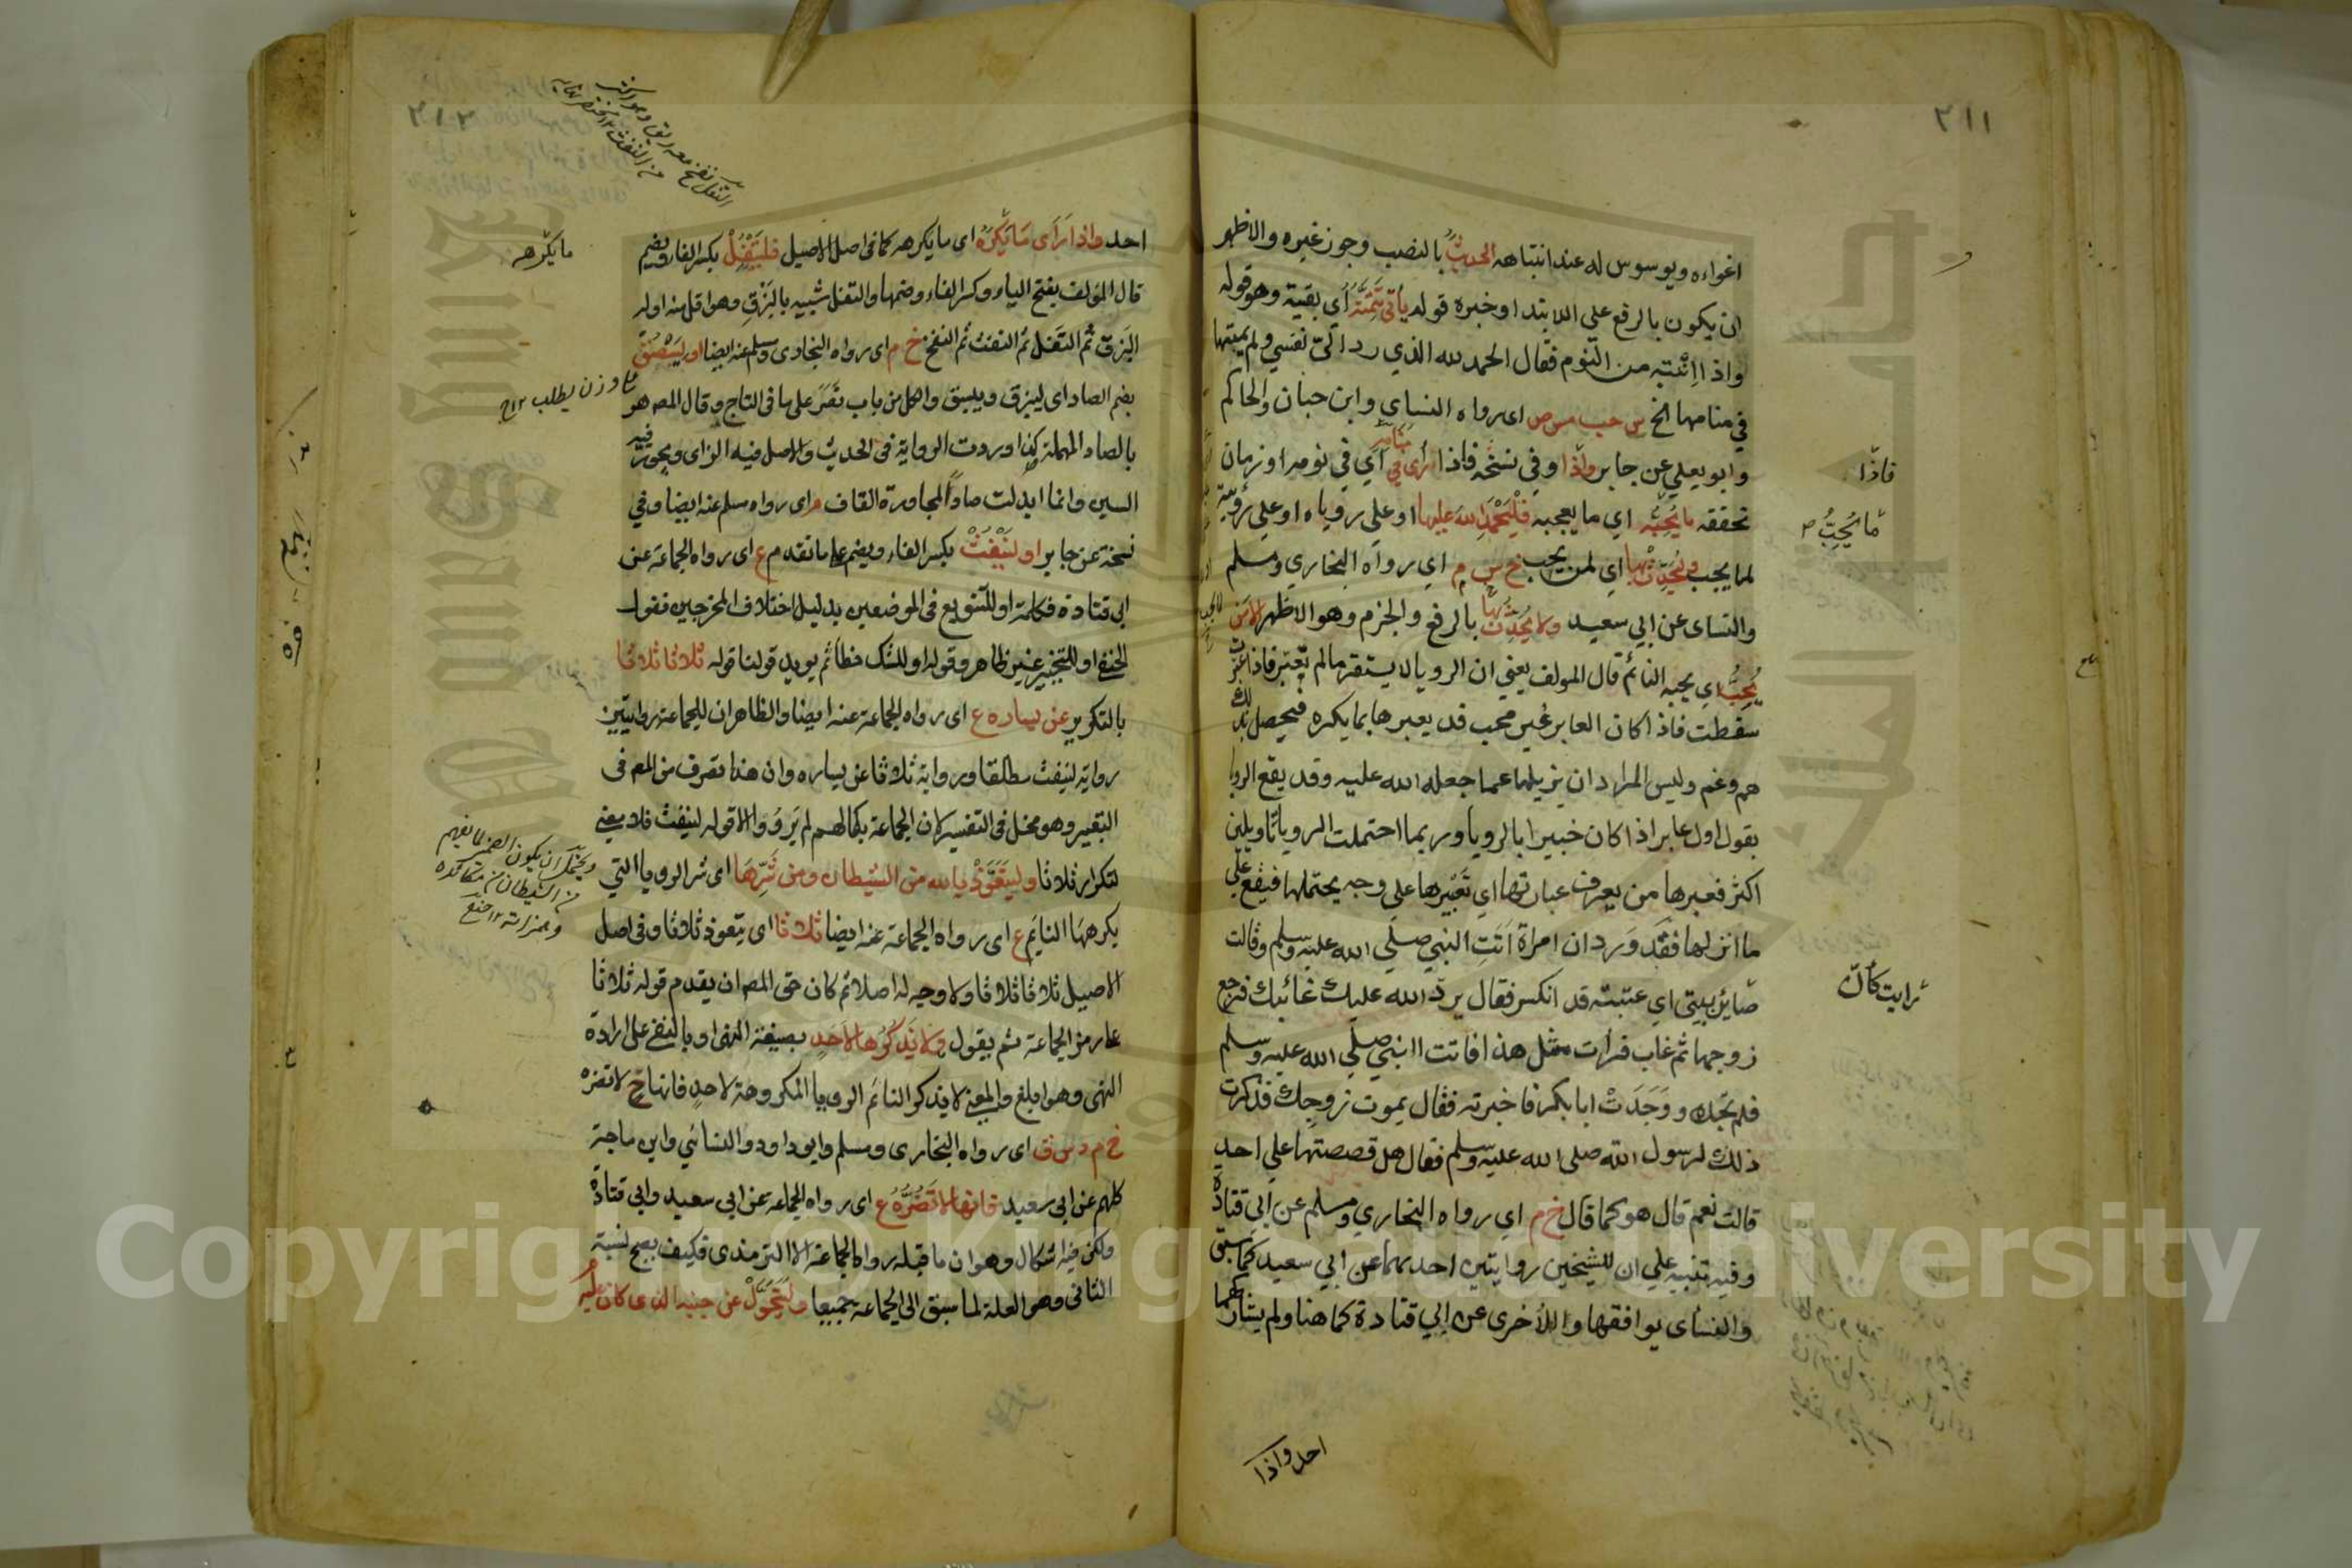 ٣١١
اغواءه ويوسوس له عند انتباهه الحديث بالنصب وجوز غيره والاظهر
ان يكون بالرفع على الابتدا وخبره قوله يأتي تتمته أي بقية وهو قوله
واذا انتبه من النوم فقال الحمد لله الذي رد الي نفسي ولم يمتها
في منامها الخ س حب مس ص اى رواه النساى وابن حبان والحاكم
وابو يعلى عن جابر واذا وفي نسخة فاذا رأى في منامه اي في نومه او زمان
تحققه ما يحبه اي ما يعجبه فليحمد الله عليها او على رؤياه او على رؤية
لما يحب وليحدث بها اي لمن يحب خ س م اي رواه البخاري ومسلم
والنساى عن ابي سعيد ولا يحدث بها بالرفع والجزم وهو الاظهر الا من
يحب اي يحبه النائم قال المولف يعني ان الرويا لا يستقر ما لم تعبر فاذا عبرت
سقطت فاذا كان العابر غير محب قد يعبرها بما يكره فيحصل بذلك
هم وغم وليس المراد ان يزيلها عما جعله الله عليه وقد يقع الرويا
بقول اول عابر اذا كان خبيرا بالرويا وربما احتملت الرويا تأويلين
اكثر فعبرها من يعرف عبارتها اي تعبيرها على وجه يحتملها فيقع على
ما انزلها فقد ورد ان امراة اتت النبي صلى الله عليه وسلم وقالت
صاير بيتي اي عتبته قد انكسر فقال يرد الله عليك غائبك فرجع
زوجها ثم غاب فرات مثل هذا فاتت النبي صلى الله عليه وسلم
فلم تجده ووجدت ابا بكر فاخبرته فقال يموت زوجك فذكرت
ذلك لرسول الله صلى الله عليه وسلم فقال هل قصصتها على احد
قالت نعم قال هو كما قال خ م اي رواه البخاري ومسلم عن ابي قتادة
وفيه تنبيه على ان للشيخين روايتين احدهما عن ابي سعيد كما سبق
والنساى يوافقهما والاخرى عن ابي قتادة كما هنا ولم يشاركهما
احد واذا
فاذا
ما يحب
رايت كأن
٣١٢
احد واذا رأى ما يكره اى ما يكرهه كما فى اصل الاصيل فليتفل بكسر الفاء ويضم
قال المؤلف بفتح الياء وكسر الفاء وضمها والتفل شبيه بالبزق وهو اقل منه اوله
البزق ثم التفل ثم النفث ثم النفخ خ م اى رواه البخارى ومسلم عنه ايضا او ليبصق
بضم الصاد اى ليبزق ويبسق والكل من باب نصر على ما فى التاج وقال المص هو
بالصاد المهملة كذا وردت الرواية فى الحديث والاصل فيه الزاى ويجوز فيه
السين وانما ابدلت صادا لمجاورة القاف م اى رواه مسلم عنه ايضا وفي
نسخة عن جابر او لينفث بكسر الفاء ويضم على ما تقدم ع اى رواه الجماعة عن
ابى قتادة فكلمة او للتنويع فى الموضعين بدليل اختلاف المخرجين فقول
الحنفى او للتخيير غير ظاهر وقوله او للشك خطأ ثم يويد قولنا قوله ثلاثا ثلاثا
بالتكرير عن يساره ع اى رواه الجماعة عنه ايضا والظاهر ان للجماعة روايتين
رواية لينفث مطلقا ورواية ثلاثا عن يساره وان هذا تصرف من المص فى
التعبير وهو مخل فى التفسير لان الجماعة بكمالهم لم يرووا الا قوله لينفث فلا معنى
لتكرار ثلاثا وليتعوذ بالله من الشيطان ومن شرها اى شر الرويا التي
يكرهها النايم ع اى رواه الجماعة عنه ايضا ثلاثا اى يتعوذ ثلاثا وفى اصل
الاصيل ثلاثا ثلاثا ولا وجه له اصلا ثم كان حق المص ان يقدم قوله ثلاثا
على رمز الجماعة ثم يقول ولا يذكرها لاحد بصيغة النهى او بالنفى على ارادة
النهى وهو ابلغ والمعنى لا يذكر النائم الرويا المكروهة لاحد فانها ح لا تضره
خ م د س ق اى رواه البخارى ومسلم وابو داود والنسائي وابن ماجة
كلهم عن ابى سعيد فانها لا تضره ع اى رواه الجماعة عن ابي سعيد وابي قتادة
ولكن فيه اشكال وهو ان ما قبله رواه الجماعة الا الترمذى فكيف يصح نسبة
الثانى وهو العلة لما سبق الى الجماعة جميعا وليتحول عن جنبه الذى كان عليه
ما يكرهه
التفل نفخ معه ريق وهو اكثر
من النفث ١٢ مختصر نهايه
على وزن يطلب ١٢ ح
ويحتمل ان يكون الضمير لما يفهم
من الشيطان من مكائده
وهمزاته ١٢ حنفى
Copyright © King Saud University
King Saud University
جامعة الملك سعود